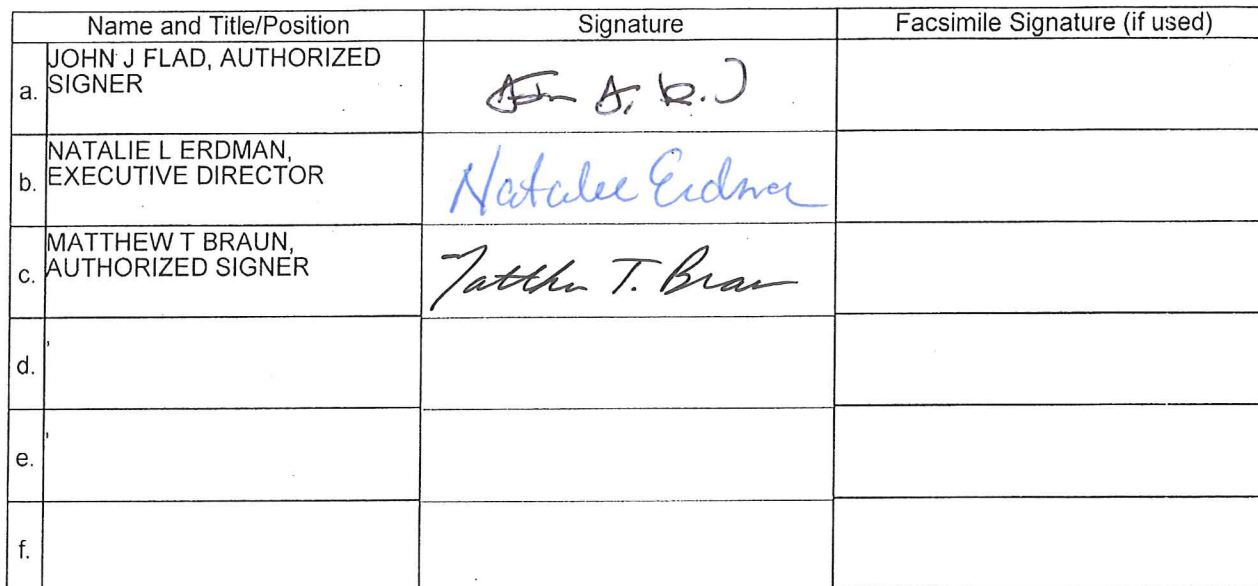 Name and Title/Position Signature Facsimile Signature (if used)
a. JOHN J FLAD, AUTHORIZED
SIGNER
b. NATALIE L ERDMAN,
EXECUTIVE DIRECTOR
Natalie Erdman
c. MATTHEW T BRAUN,
AUTHORIZED SIGNER
Matthew T. Braun
d. ,
e. ,
f.